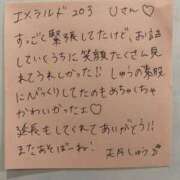 エメラルド203 Uさん♡
すっごく緊張してたけど、お話
していくうちに笑顔たくさん見
れてうれしかった!! しゅうの素股
にびっくりしてたのもめちゃくちゃ
かわいかったェ♡
延長もしてくれてありがとう!!
またあそぼーね!
しゅう